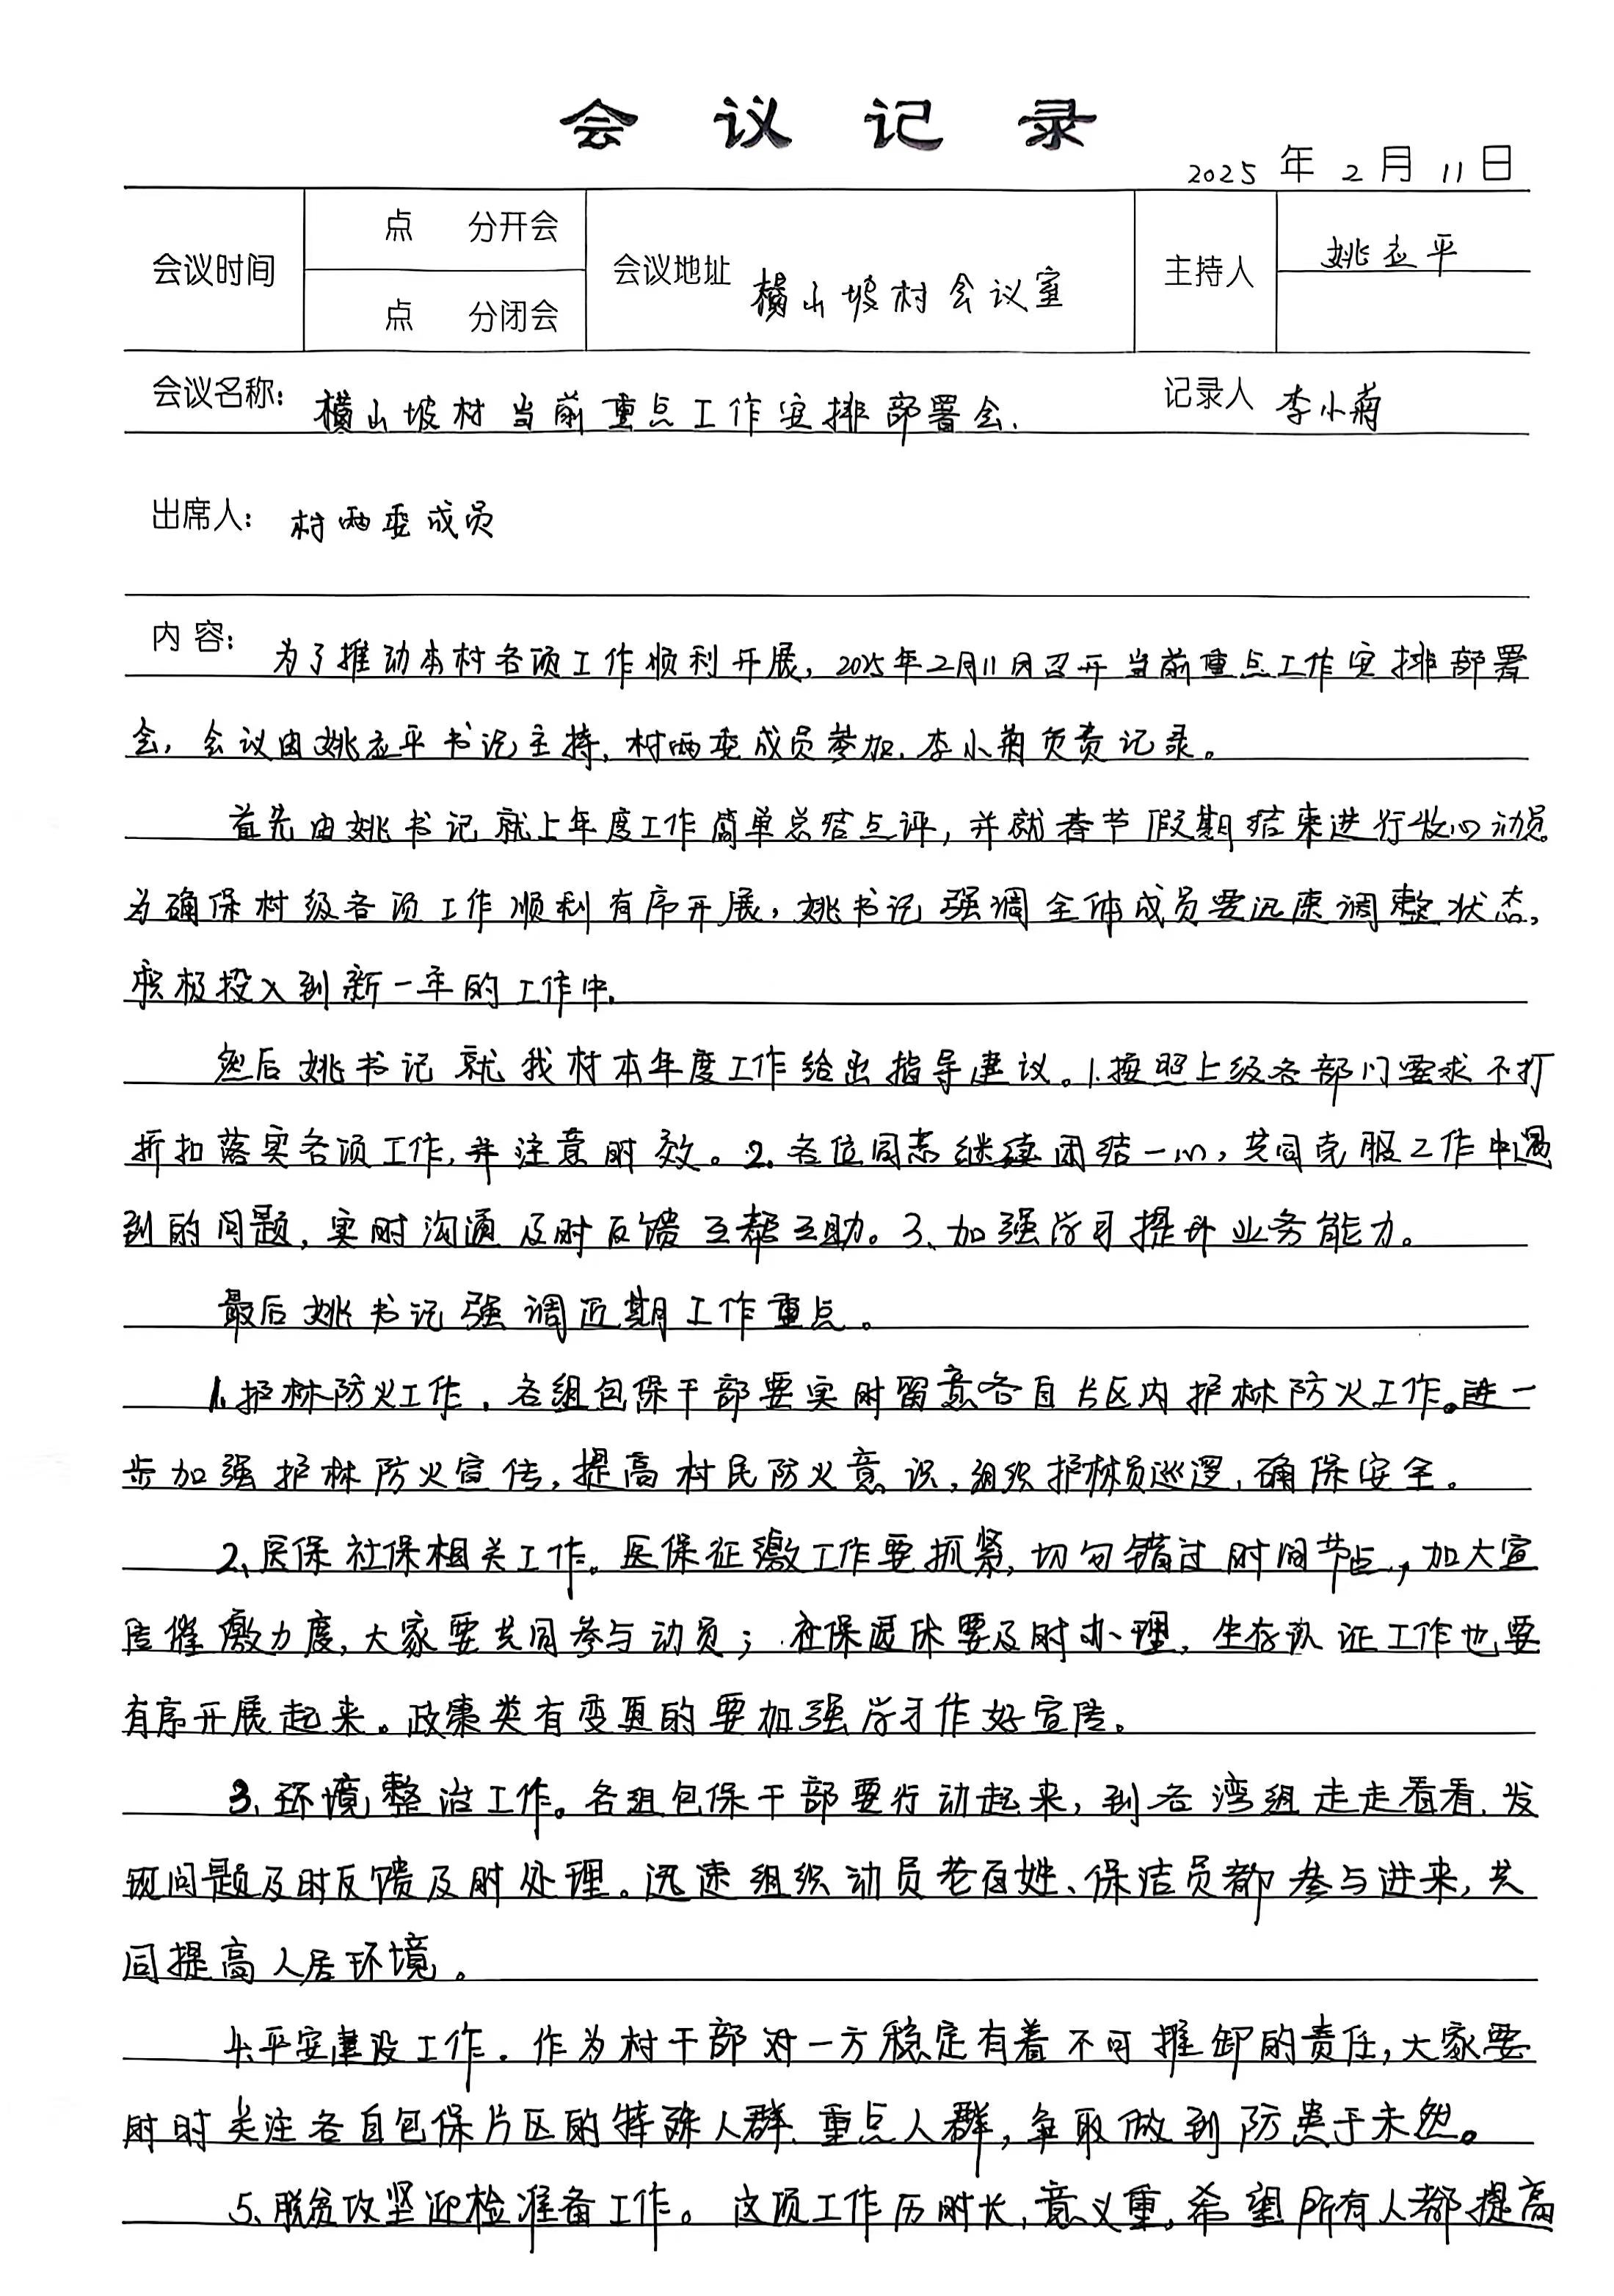 会议记录
2025年2月11日
会议时间 点 分开会 会议地址 横山坡村会议室 主持人 姚应平
点 分闭会
会议名称: 横山坡村当前重点工作安排部署会. 记录人 李小菊
出席人: 村两委成员
内容: 为了推动本村各项工作顺利开展, 2025年2月11日召开当前重点工作安排部署
会, 会议由姚应平书记主持, 村两委成员参加, 李小菊负责记录。
首先由姚书记就上年度工作简单总结点评, 并就春节假期结束进行收心动员。
为确保村级各项工作顺利有序开展, 姚书记强调全体成员要迅速调整状态,
积极投入到新一年的工作中.
然后姚书记就我村本年度工作给出指导建议。1.按照上级各部门要求不打
折扣落实各项工作, 并注意时效。2.各位同志继续团结一心, 共同克服工作中遇
到的问题, 实时沟通及时反馈互帮互助。3、加强学习提升业务能力。
最后姚书记强调近期工作重点。
1.护林防火工作. 各组包保干部要实时留意各自片区内护林防火工作。进一
步加强护林防火宣传, 提高村民防火意识, 组织护林员巡逻, 确保安全。
2、医保社保相关工作。医保征缴工作要抓紧, 切勿错过时间节点, 加大宣
传催缴力度, 大家要共同参与动员; 社保退休要及时办理, 生存认证工作也要
有序开展起来。政策类有变更的要加强学习作好宣传。
3、环境整治工作。各组包保干部要行动起来, 到各湾组走走看看, 发
现问题及时反馈及时处理。迅速组织动员老百姓、保洁员都参与进来, 共
同提高人居环境。
4.平安建设工作. 作为村干部对一方稳定有着不可推卸的责任, 大家要
时时关注各自包保片区的特殊人群、重点人群, 争取做到防患于未然。
5、脱贫攻坚迎检准备工作。这项工作历时长, 意义重, 希望所有人都提高